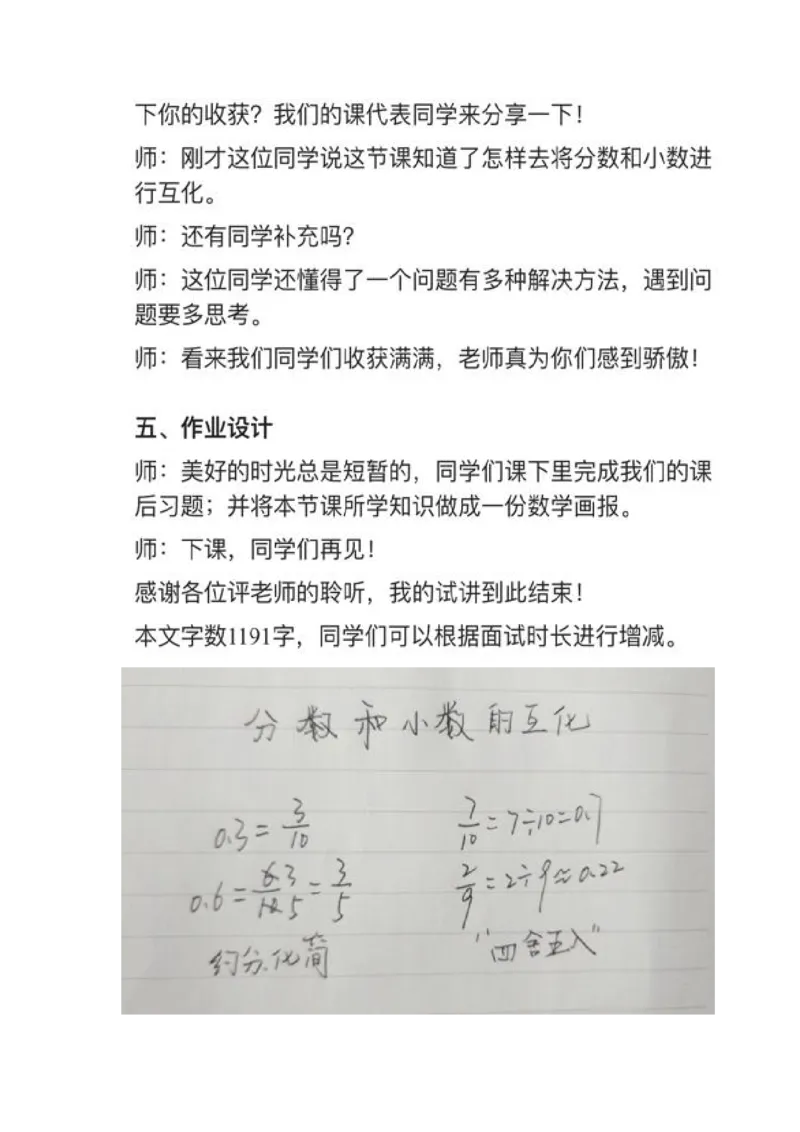 下你的收获？我们的课代表同学来分享一下！
师：刚才这位同学说这节课知道了怎样去将分数和小数进
行互化。
师：还有同学补充吗？
师：这位同学还懂得了一个问题有多种解决方法，遇到问
题要多思考。
师：看来我们同学们收获满满，老师真为你们感到骄傲！
五、作业设计
师：美好的时光总是短暂的，同学们课下里完成我们的课
后习题；并将本节课所学知识做成一份数学画报。
师：下课，同学们再见！
感谢各位评老师的聆听，我的试讲到此结束！
本文字数1191字，同学们可以根据面试时长进行增减。
分数和小数的互化
0.3=3/10
7/10=7÷10=0.7
0.6=6/10 3/5=3/5
2/9=2÷9≈0.22
约分.化简
"四舍五入"